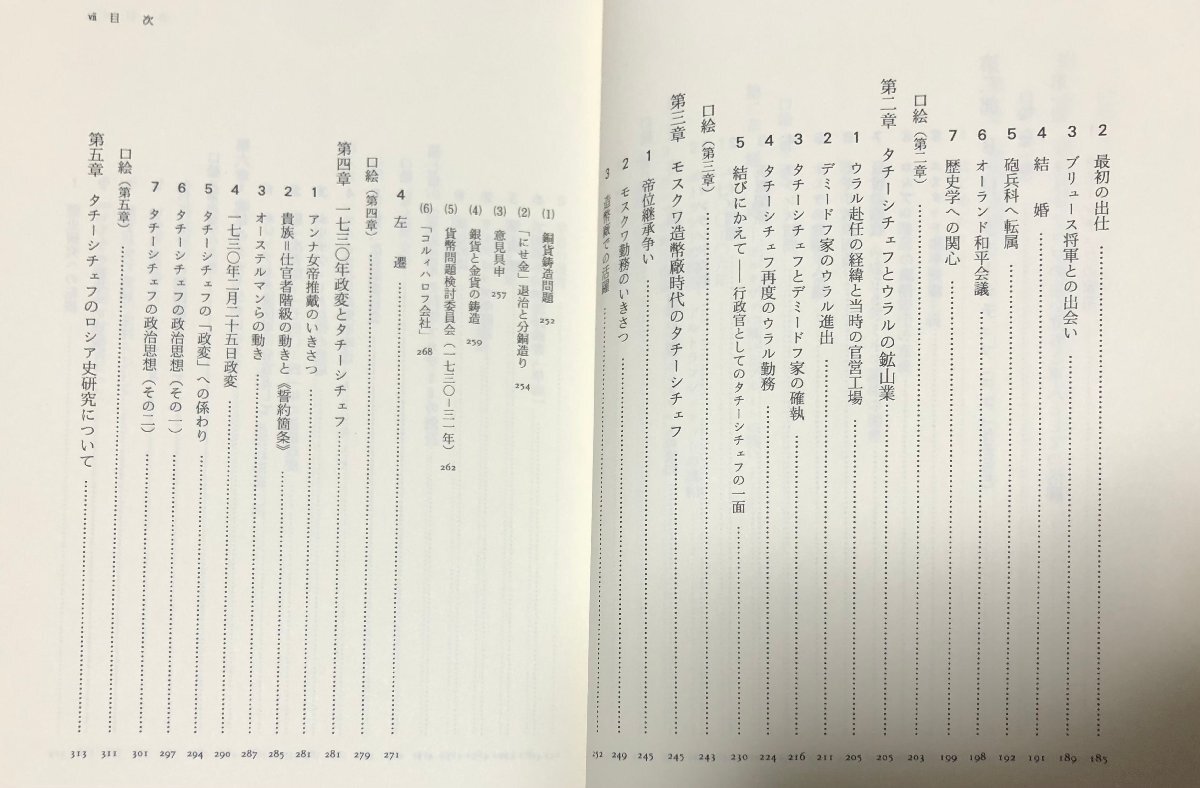 2 最初の出仕 185
3 ブリュース将軍との出会い 189
4 結婚 191
5 砲兵科へ転属 192
6 オーランド和平会議 198
7 歴史学への関心 199
口絵(第二章) 203
第二章 タチーシチェフとウラルの鉱山業 205
1 ウラル赴任の経緯と当時の官営工場 205
2 デミードフ家のウラル進出 211
3 タチーシチェフとデミードフ家の確執 216
4 タチーシチェフ再度のウラル勤務 224
5 結びにかえて——行政官としてのタチーシチェフの一面 230
口絵(第三章) 243
第三章 モスクワ造幣廠時代のタチーシチェフ 245
1 帝位継承争い 245
2 モスクワ勤務のいきさつ 249
3 造幣廠での活躍 252
(1) 銅貨鋳造問題 252
(2) 「にせ金」退治と分銅造り 254
(3) 意見具申 257
(4) 銀貨と金貨の鋳造 259
(5) 貨幣問題検討委員会(一七三〇-三一年) 262
(6) 「コルィハロフ会社」 268
4 左遷 271
口絵(第四章) 279
第四章 一七三〇年政変とタチーシチェフ 281
1 アンナ女帝推戴のいきさつ 281
2 貴族=仕官者階級の動きと《誓約箇条》 285
3 オーステルマンらの動き 287
4 一七三〇年二月二十五日政変 290
5 タチーシチェフの「政変」への係わり 294
6 タチーシチェフの政治思想(その一) 297
7 タチーシチェフの政治思想(その二) 301
口絵(第五章) 311
第五章 タチーシチェフのロシア史研究について 313
vii 目次